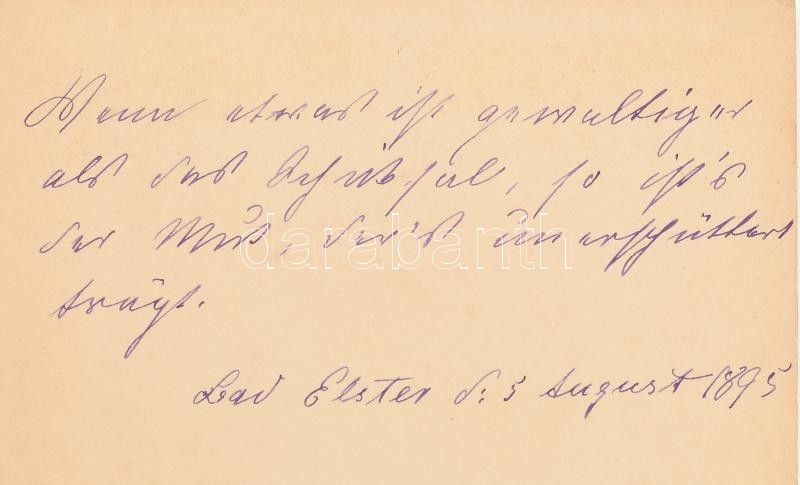 Wenn etwas ist gewaltiger
als das Schicksal, so ist's
der Mut, der's unerschüttert
trägt.
darabanth
Bad Elster d. 5 August 1895